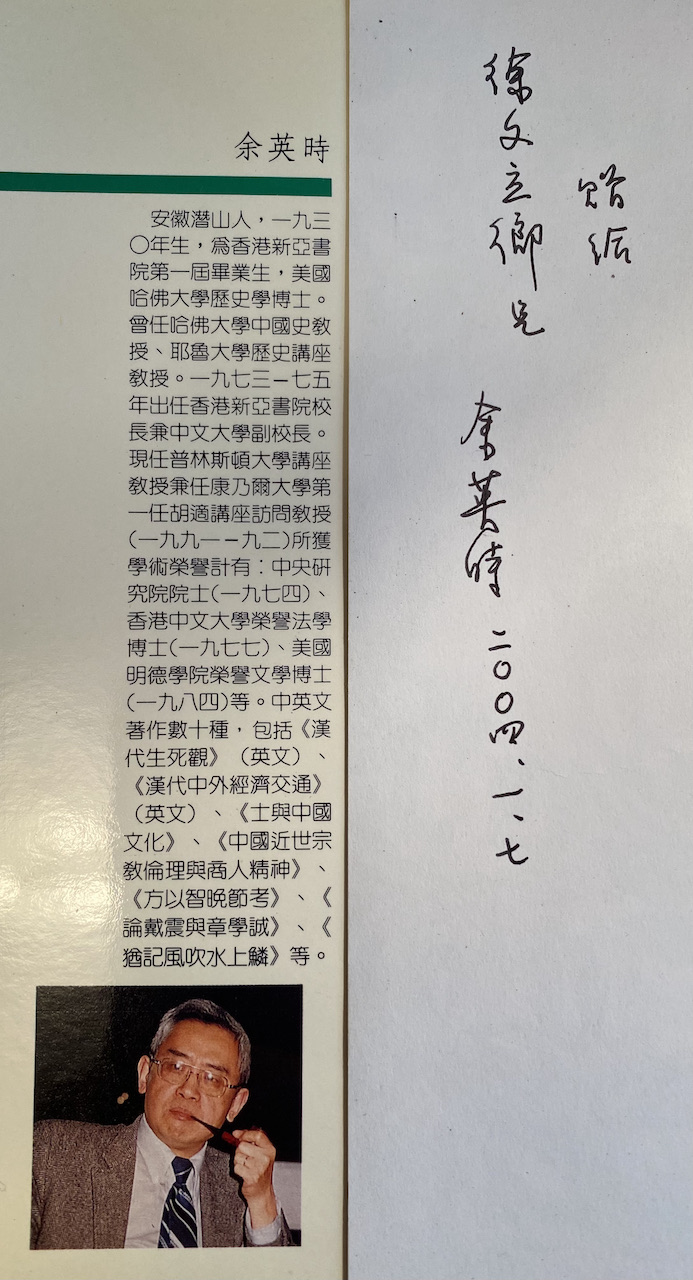 余英時
安徽潛山人，一九三
〇年生，爲香港新亞書
院第一屆畢業生，美國
哈佛大學歷史學博士。
曾任哈佛大學中國史教
授、耶魯大學歷史講座
教授。一九七三－七五
年出任香港新亞書院校
長兼中文大學副校長。
現任普林斯頓大學講座
教授兼任康乃爾大學第
一任胡適講座訪問教授
(一九九一－九二)所獲
學術榮譽計有：中央研
究院院士(一九七四)、
香港中文大學榮譽法學
博士(一九七七)、美國
明德學院榮譽文學博士
(一九八四)等。中英文
著作數十種，包括《漢
代生死觀》（英文）、
《漢代中外經濟交通》
（英文）、《士與中國
文化》、《中國近世宗
教倫理與商人精神》、
《方以智晚節考》、《
論戴震與章學誠》、《
猶記風吹水上鱗》等。
徐文立鄉兄
余英時 二〇〇四、一、七